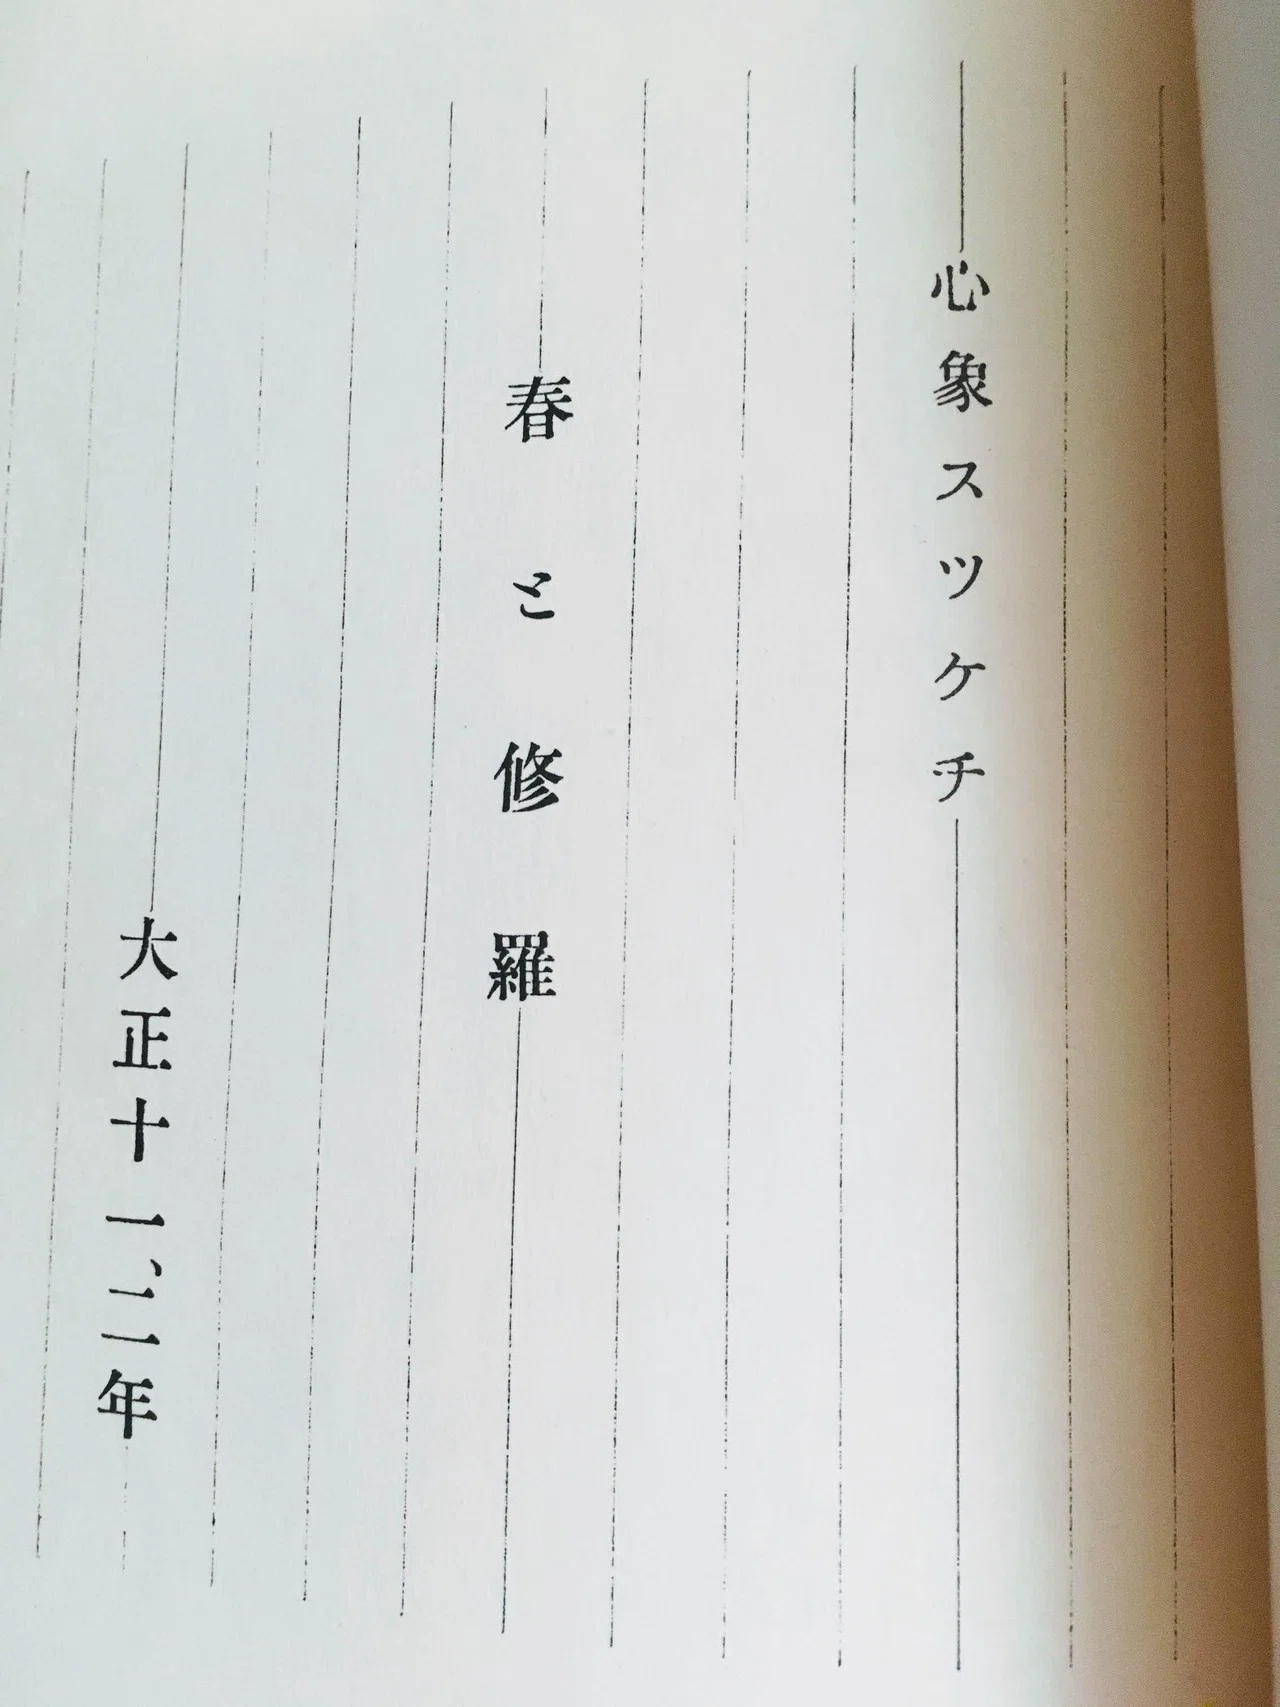 心象スツケチ
春と修羅
大正十一、二年